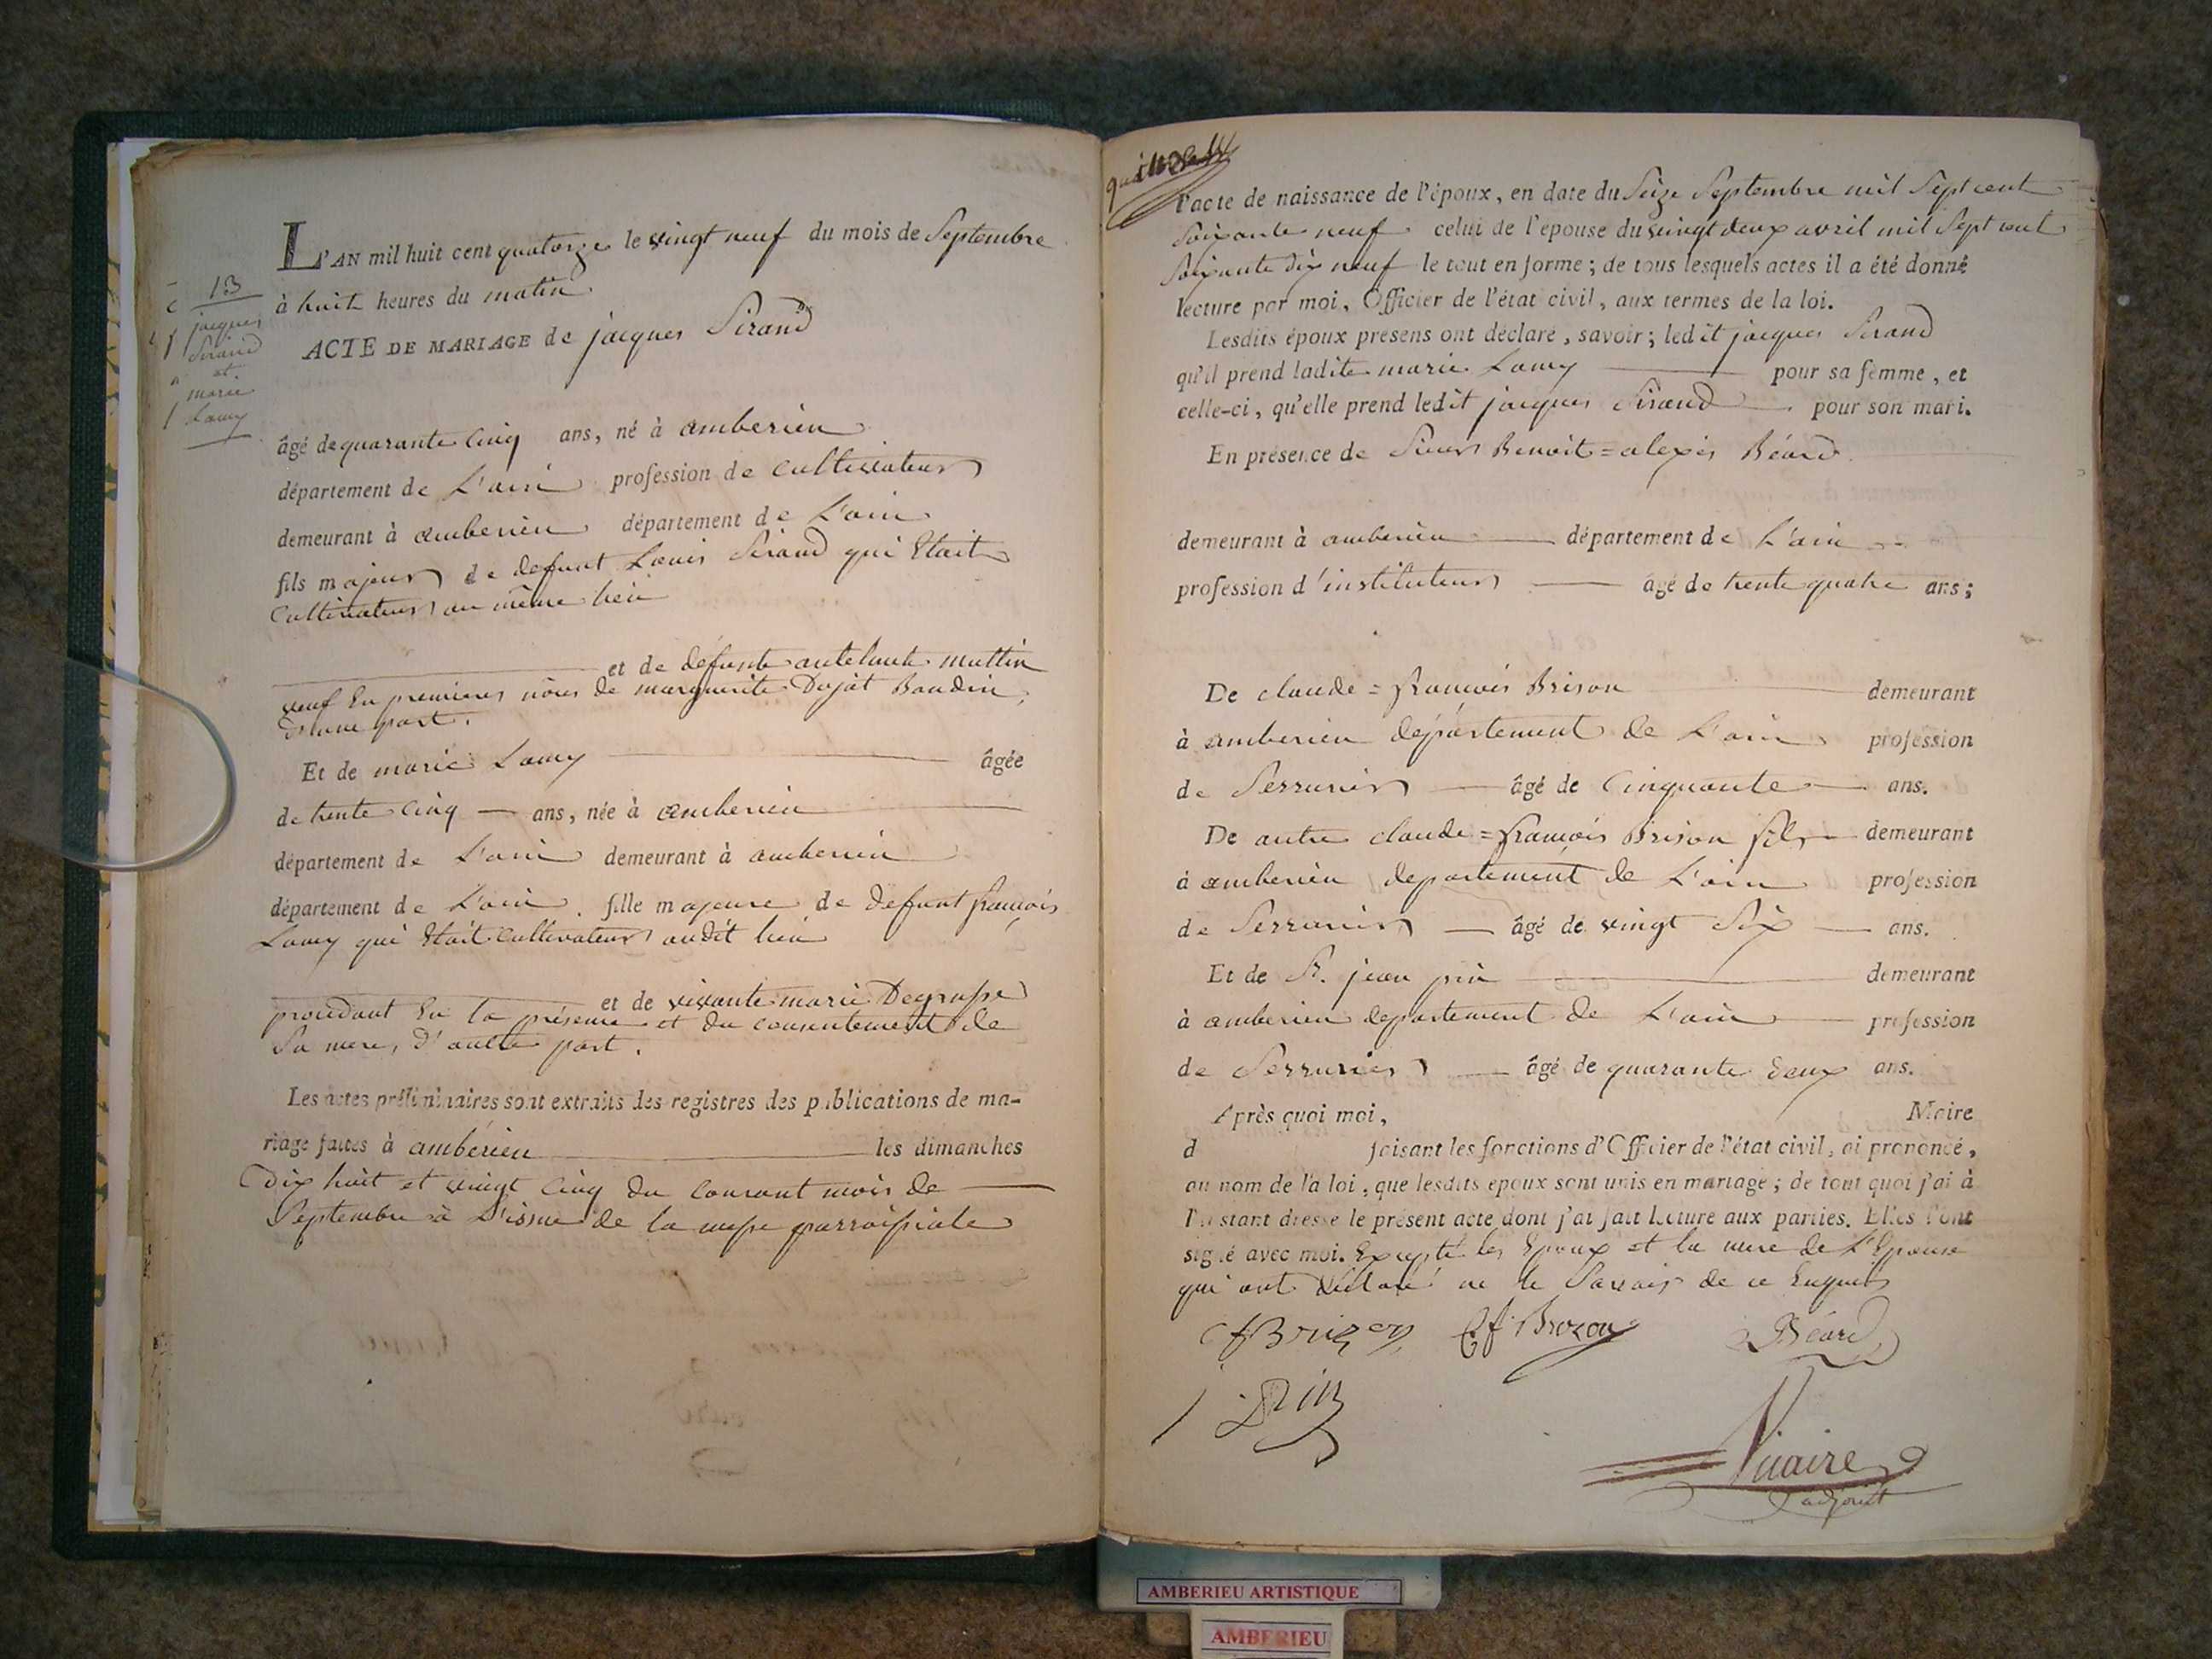 13
jacques
Sirand
et
marie
Lamy
L'AN mil huit cent quatorze le vingt neuf du mois de Septembre
à huit heures du matin
ACTE DE MARIAGE de jacques Sirand
âgé de quarante cinq ans, né à amberieu
département de L'ain profession de cultivateur
demeurant à amberieu département de L'ain
fils majeur de defunt Louis Sirand qui Etait
cultivateur au même lieu
et de défunte mettin
veuf En premieres nôces de marguerite Dujat Baudin,
d'une part.
Et de marie Lamy âgée
de trente cinq ans, née à amberieu
département de L'ain demeurant à amberieu
département de L'ain. fille majeure de defunt françois
Lamy qui Etait cultivateur audit lieu
et de vivante marie Degrusse
procédant En la présence et du consentement de
Sa mere, d'autre part.
Les actes préliminaires sont extraits des registres des publications de ma-
riage faites à ambérieu les dimanches
dix huit et vingt cinq du courant mois de
Septembre à L'issue de la messe parroissiale
l'acte de naissance de l'époux, en date du Seize Septembre mil Sept cent
Soixante neuf celui de l'epouse du vingt deux avril mil Sept cent
Soixante dix neuf le tout en forme ; de tous lesquels actes il a été donné
lecture par moi, Officier de l'état civil, aux termes de la loi.
Lesdits époux presens ont déclaré, savoir ; ledit jacques Sirand
qu'il prend ladite marie Lamy pour sa femme, et
celle-ci, qu'elle prend ledit jacques Sirand pour son mari.
En présence de Sieur Benoit=alexis Béard
demeurant à amberieu département de L'ain
profession d'instituteur âgé de trente quatre ans ;
De claude=françois Brison demeurant
à amberieu département de L'ain profession
de Serrurier âgé de Cinquante ans.
De autre claude=françois Brison fils demeurant
à amberieu departement de L'ain profession
de Serrurier âgé de vingt Six ans.
Et de Sr. jean pin demeurant
à amberieu departement de L'ain profession
de Serrurier âgé de quarante deux ans.
Après quoi moi, Maire
d faisant les fonctions d'Officier de l'état civil, ai prononcé,
au nom de la loi, que lesdits époux sont unis en mariage ; de tout quoi j'ai à
l'instant dressé le présent acte dont j'ai fait lecture aux parties. Elles l'ont
signé avec moi. Excepté les Epoux et la mere de L'Epouse
qui ont déclaré ne le Savoir de ce Enquis
Cf Brizon Cf Brozon Béard
j pin
Vicaire
adjoint
AMBERIEU ARTISTIQUE
AMBERIEU